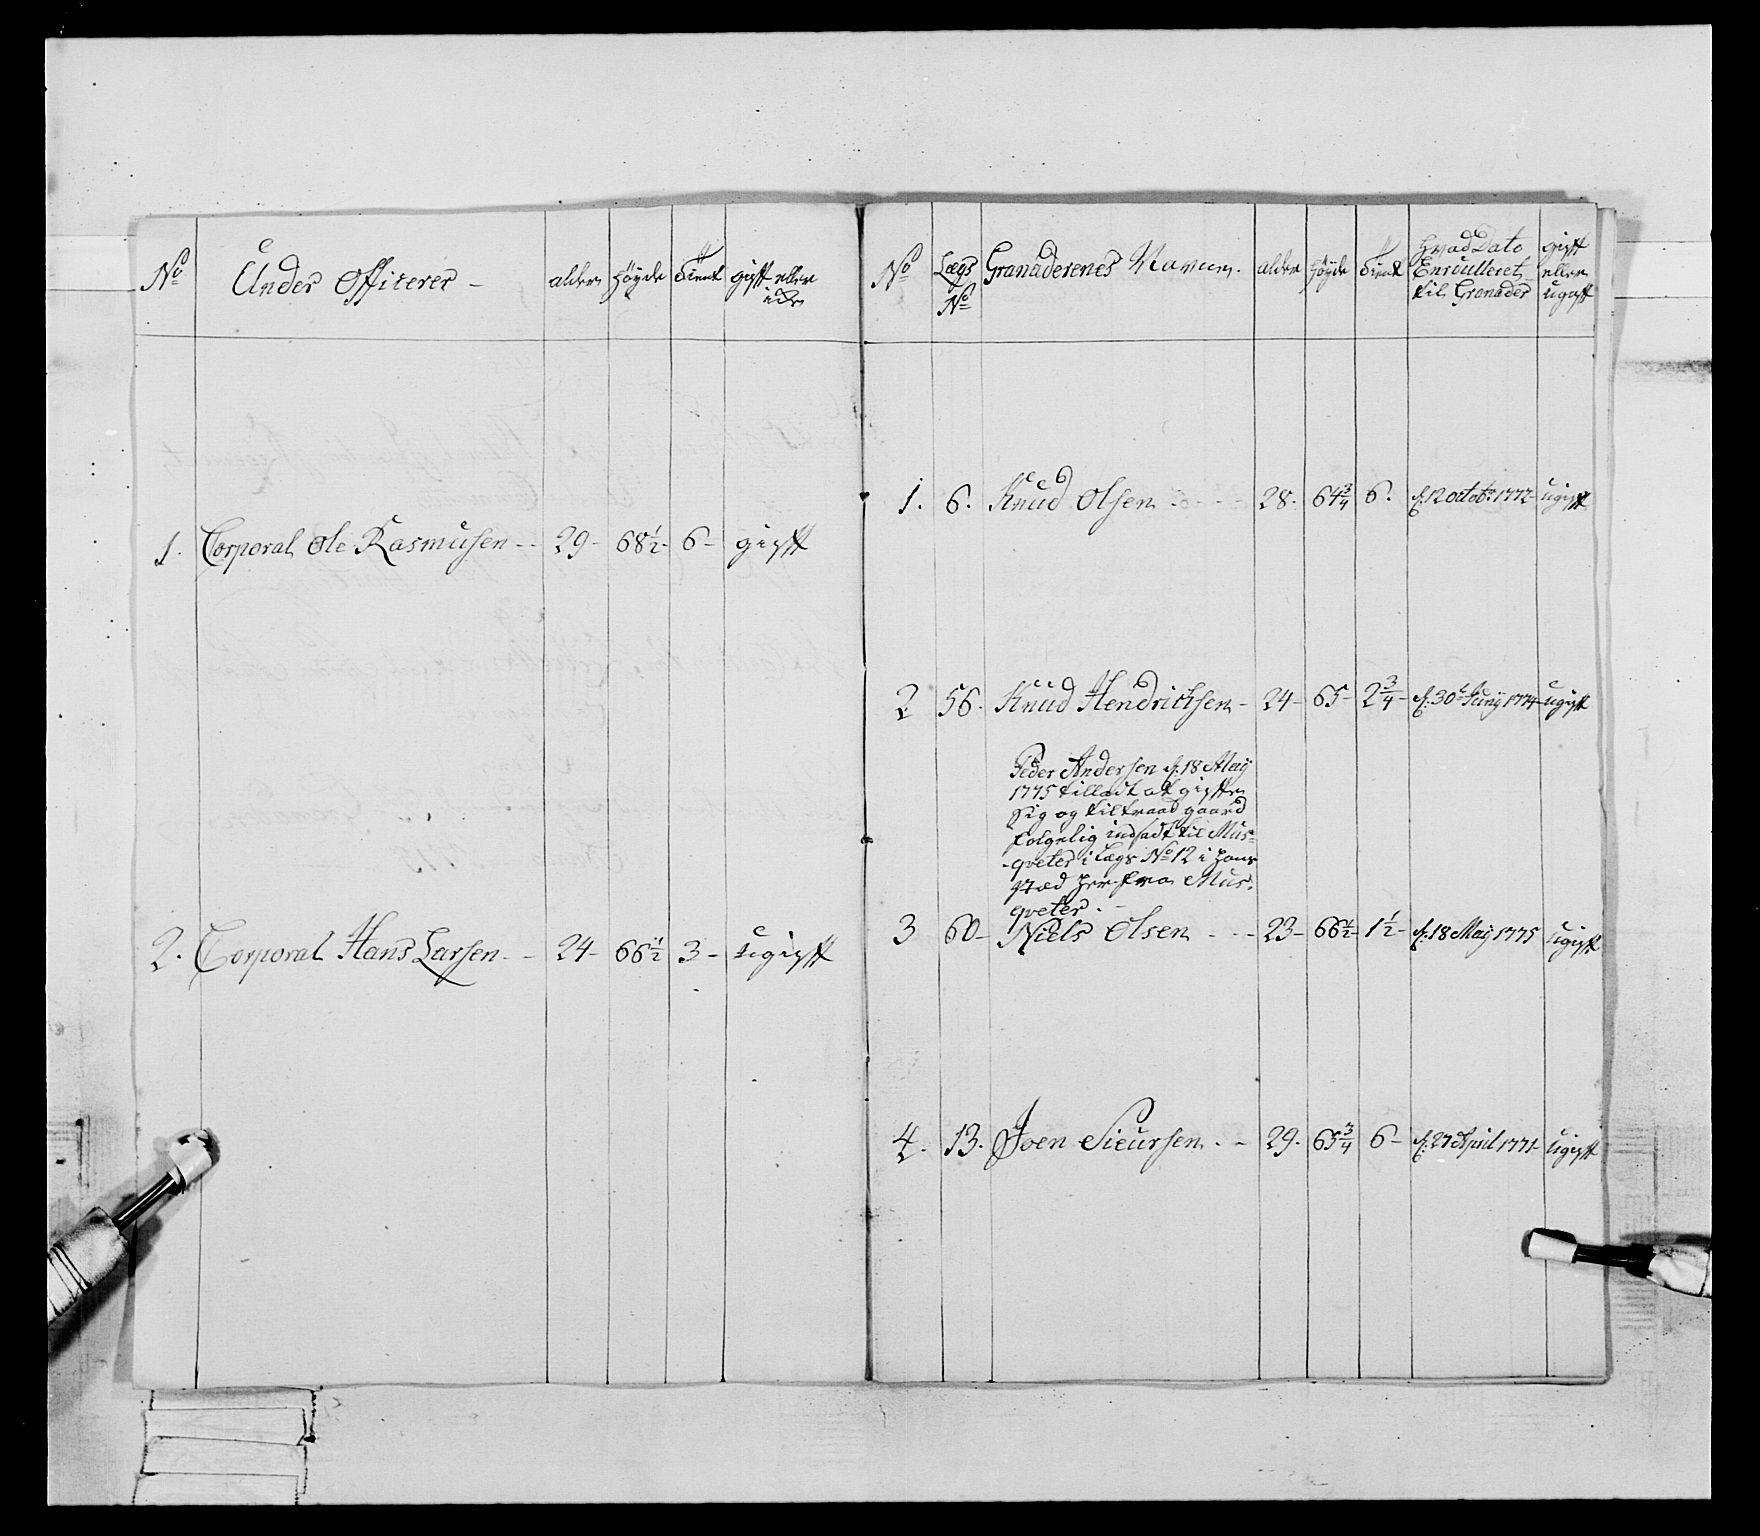 No Under Officerer - alder høyde tient gift eller
ide
1. Corporal Ole Rasmusen - - 29 - 68 1/2 - 6 - gift
2. Corporal Hans Larsen - - 24 - 66 1/2 3 - ugift
No Lægs No Granaderenes Navne. alder høyde tient hvad Dato Enrulleret til Granader gift eller ugift
1. 6. Knud Olsen - - - 28. 64 3/4 6. d. 12 octobr 1772 - ugift
2 56. Knud Hendrichsen - 24 - 65 - 2 3/4 - d. 30te Junÿ 1774 - ugift
Peder Andersen d. 18 Maÿ
1775 tilladt at gifte
sig og tiltraad gaard
følgelig indsadt til Mus-
-qveter i Lægs No 12 i hans
stæd her fra Mus-
qveter.
3 60 - Niels Olsen - - - 23 - 66 1/2 - 1 1/2 - d. 18 Maÿ 1775 ugift
4. 13. Joen Siursen - - 29. 65 3/4 6 - d. 27 April 1771 - ugift